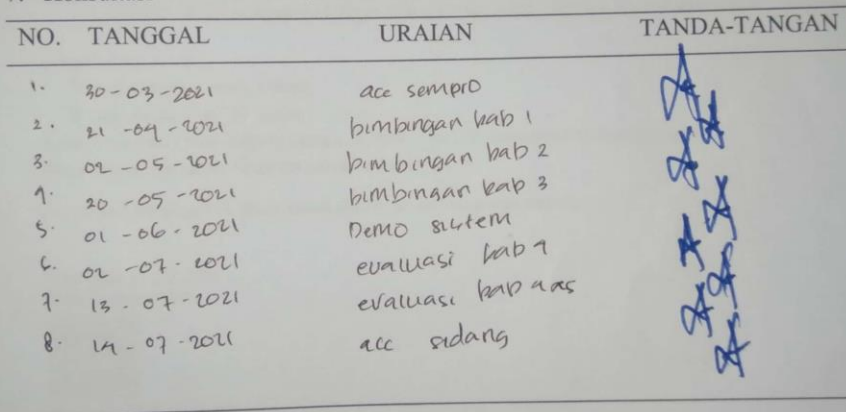 NO. TANGGAL URAIAN TANDA-TANGAN
1. 30-03-2021 acc sempro
2. 21-04-2021 bimbingan bab 1
3. 02-05-2021 bimbingan bab 2
4. 20-05-2021 bimbingan bab 3
5. 01-06-2021 Demo sistem
6. 02-07-2021 evaluasi bab 4
7. 13-07-2021 evaluasi bab 4
8. 14-07-2021 acc sidang